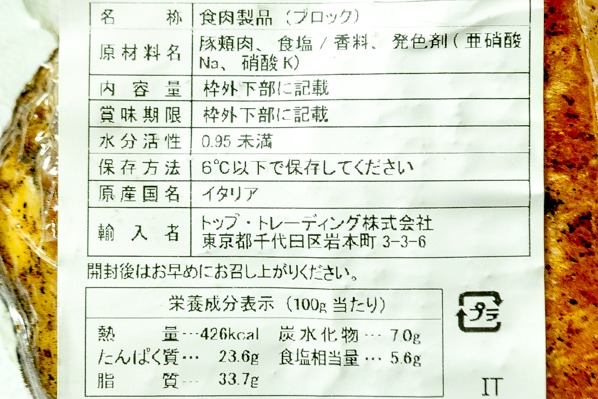 名 称 食肉製品（ブロック）
原材料名 豚頬肉、食塩/香料、発色剤(亜硝酸
Na、硝酸K)
内容量 枠外下部に記載
賞味期限 枠外下部に記載
水分活性 0.95 未満
保存方法 6℃以下で保存してください
原産国名 イタリア
輸入者 トップ・トレーディング株式会社
東京都千代田区岩本町 3-3-6
開封後はお早めにお召し上がりください。
栄養成分表示（100g 当たり）
熱 量…426kcal 炭水化物… 7.0g
たんぱく質… 23.6g 食塩相当量… 5.6g
脂 質… 33.7g
プラ
IT